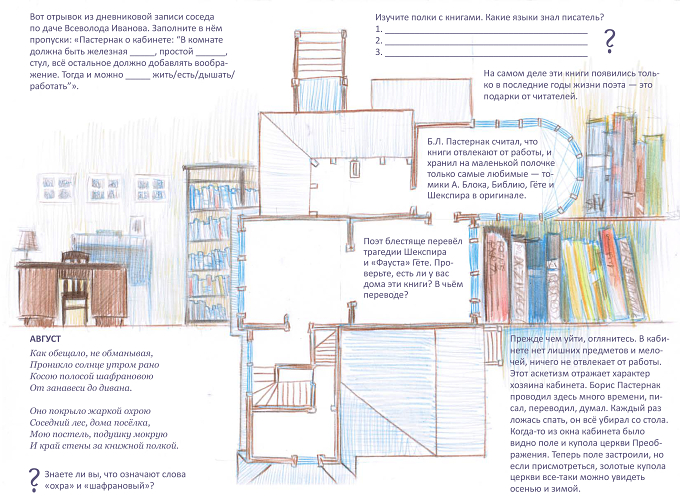 Вот отрывок из дневниковой записи соседа
по даче Всеволода Иванова. Заполните в нём
пропуски: «Пастернак о кабинете: “В комнате
должна быть железная _____, простой ______,
стул, всё остальное должно добавлять вообра-
жение. Тогда и можно _____ жить/есть/дышать/
работать”».
Изучите полки с книгами. Какие языки знал писатель?
1. ______________________________
2. ______________________________
3. ______________________________
?
На самом деле эти книги появились толь-
ко в последние годы жизни поэта — это
подарки от читателей.
Б.Л. Пастернак считал, что
книги отвлекают от работы, и
хранил на маленькой полочке
только самые любимые — то-
мики А. Блока, Библию, Гёте и
Шекспира в оригинале.
Поэт блестяще перевёл
трагедии Шекспира
и «Фауста» Гёте. Про-
верьте, есть ли у вас
дома эти книги? В чьём
переводе?
АВГУСТ
Как обещало, не обманывая,
Проникло солнце утром рано
Косою полосой шафрановою
От занавеси до дивана.
Оно покрыло жаркой охрою
Соседний лес, дома посёлка,
Мою постель, подушку мокрую
И край стены за книжной полкой.
? Знаете ли вы, что означают слова
«охра» и «шафрановый»?
Прежде чем уйти, оглянитесь. В каби-
нете нет лишних предметов и мело-
чей, ничего не отвлекает от работы.
Этот аскетизм отражает характер
хозяина кабинета. Борис Пастернак
проводил здесь много времени, пи-
сал, переводил, думал. Каждый раз
ложась спать, он всё убирал со стола.
Когда-то из окна кабинета было
видно поле и купола церкви Преоб-
ражения. Теперь поле застроили, но
если присмотреться, золотые купола
церкви все-таки можно увидеть
осенью и зимой.